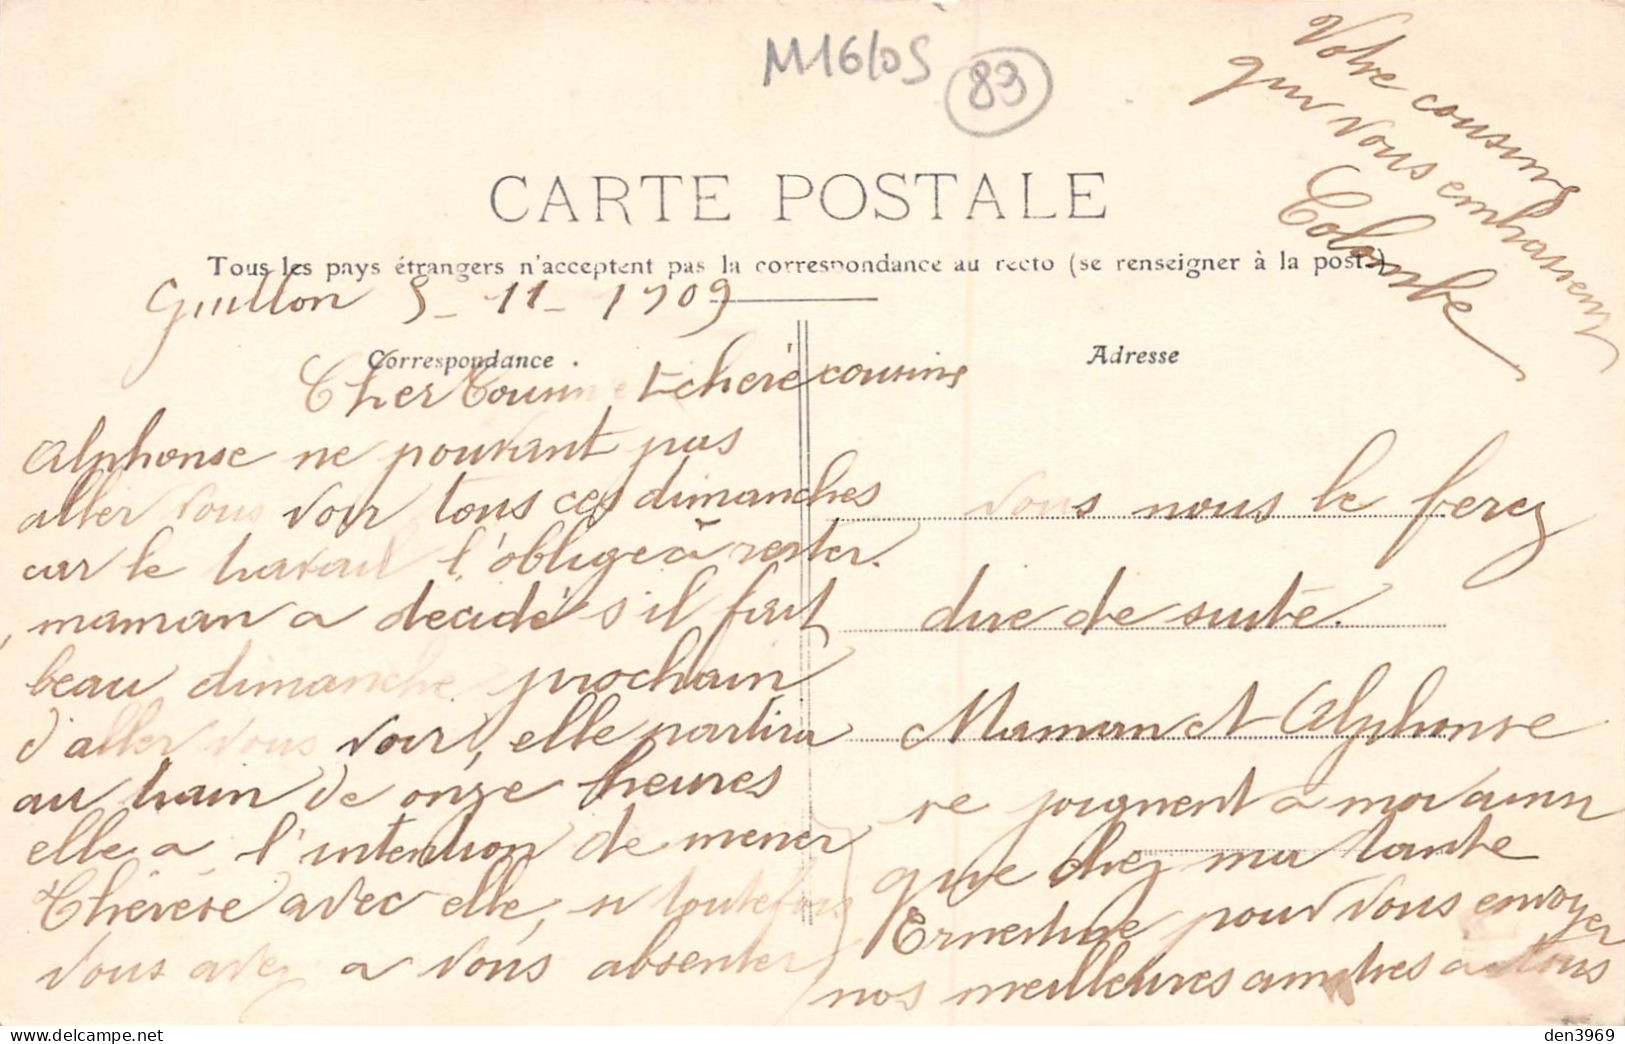 M16/05 83
CARTE POSTALE
Tous les pays étrangers n'acceptent pas la correspondance au recto (se renseigner à la poste)
Guillon 5-11-1909
Correspondance
Adresse
Cher Cousin et cheré cousine
Alphonse ne pouvant pas
aller vous voir tous ces dimanches
car le travail l'oblige à rester.
maman a decidé s'il fait
beau dimanche prochain
d'aller vous voir, elle partira
au train de onze heures
elle a l'intention de mener
Thérèse avec elle, si toutefois
vous avez a vous absenter
vous nous le ferez
dire de suite.
Maman et Alphonse
se joignent a moi ainsi
que chez ma tante
Ernestine pour vous envoyer
nos meilleures amitiés a tous
Votre cousine
qui vous embrassent
Colombe
den3969